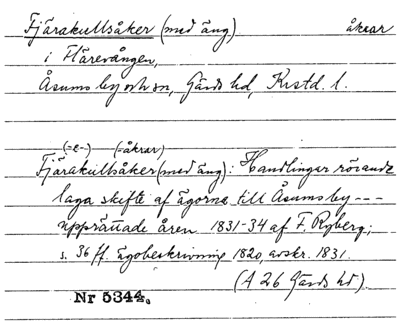 Fjärakullsåker (med äng) åkrar
i Flärevången,
Åsums by och sn, Gärds hd, Krstd. l.
(=e-) (=åkrar)
Fjärakullsåker (med äng): Handlingar rörande
laga skifte af ägorna till Åsums by ---
upprättade åren 1831-34 af F. Ryberg;
s. 36 ff. ägobeskrivning 1820, avskr. 1831.
(A 26 Gärds hd)
Nr 5344.